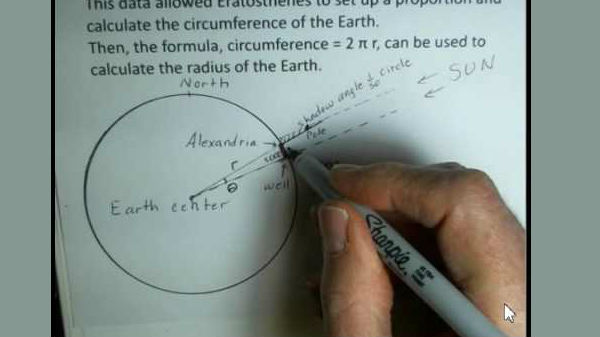 This data allowed Eratosthenes to set up a proportion and
calculate the circumference of the Earth.
Then, the formula, circumference = 2 π r, can be used to
calculate the radius of the Earth.
North
SUN
shadow angle 1/50 circle
Pole
Alexandria
r
θ
well
Earth center
Sharpie